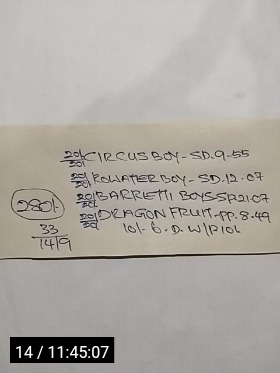 20/50 CIRCUS BOY - SD.9-55
20/20 ROWATER BOY - SD.12-07
20/50 BARRETTI BOYS SP.21.07
20/50 DRAGON FRUIT - PP.8.49
280/-
10/- 6.D.W/P 10L
33
14/9
14 / 11:45:07